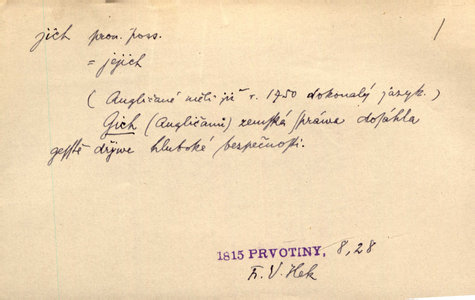 jich pron. poss. 1
= jejich
(Angličané měli již r. 1750 dokonalý jazyk.)
Gich (Angličanů) zemská spráwa dosáhla
gesstě dřjwe hluboké bezpečnosti.
1815 PRVOTINY, 8, 28
Fr. V. Hek